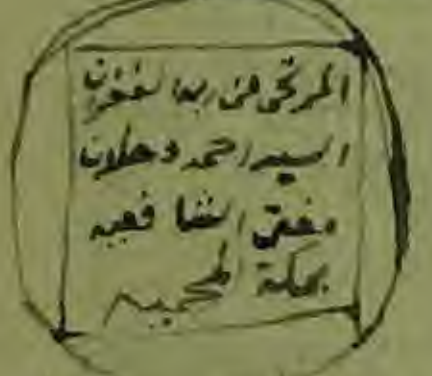 المرتجى من ربه الغفران
السيد احمد دحلان
مفتى الشافعيه
بمكة المحميه